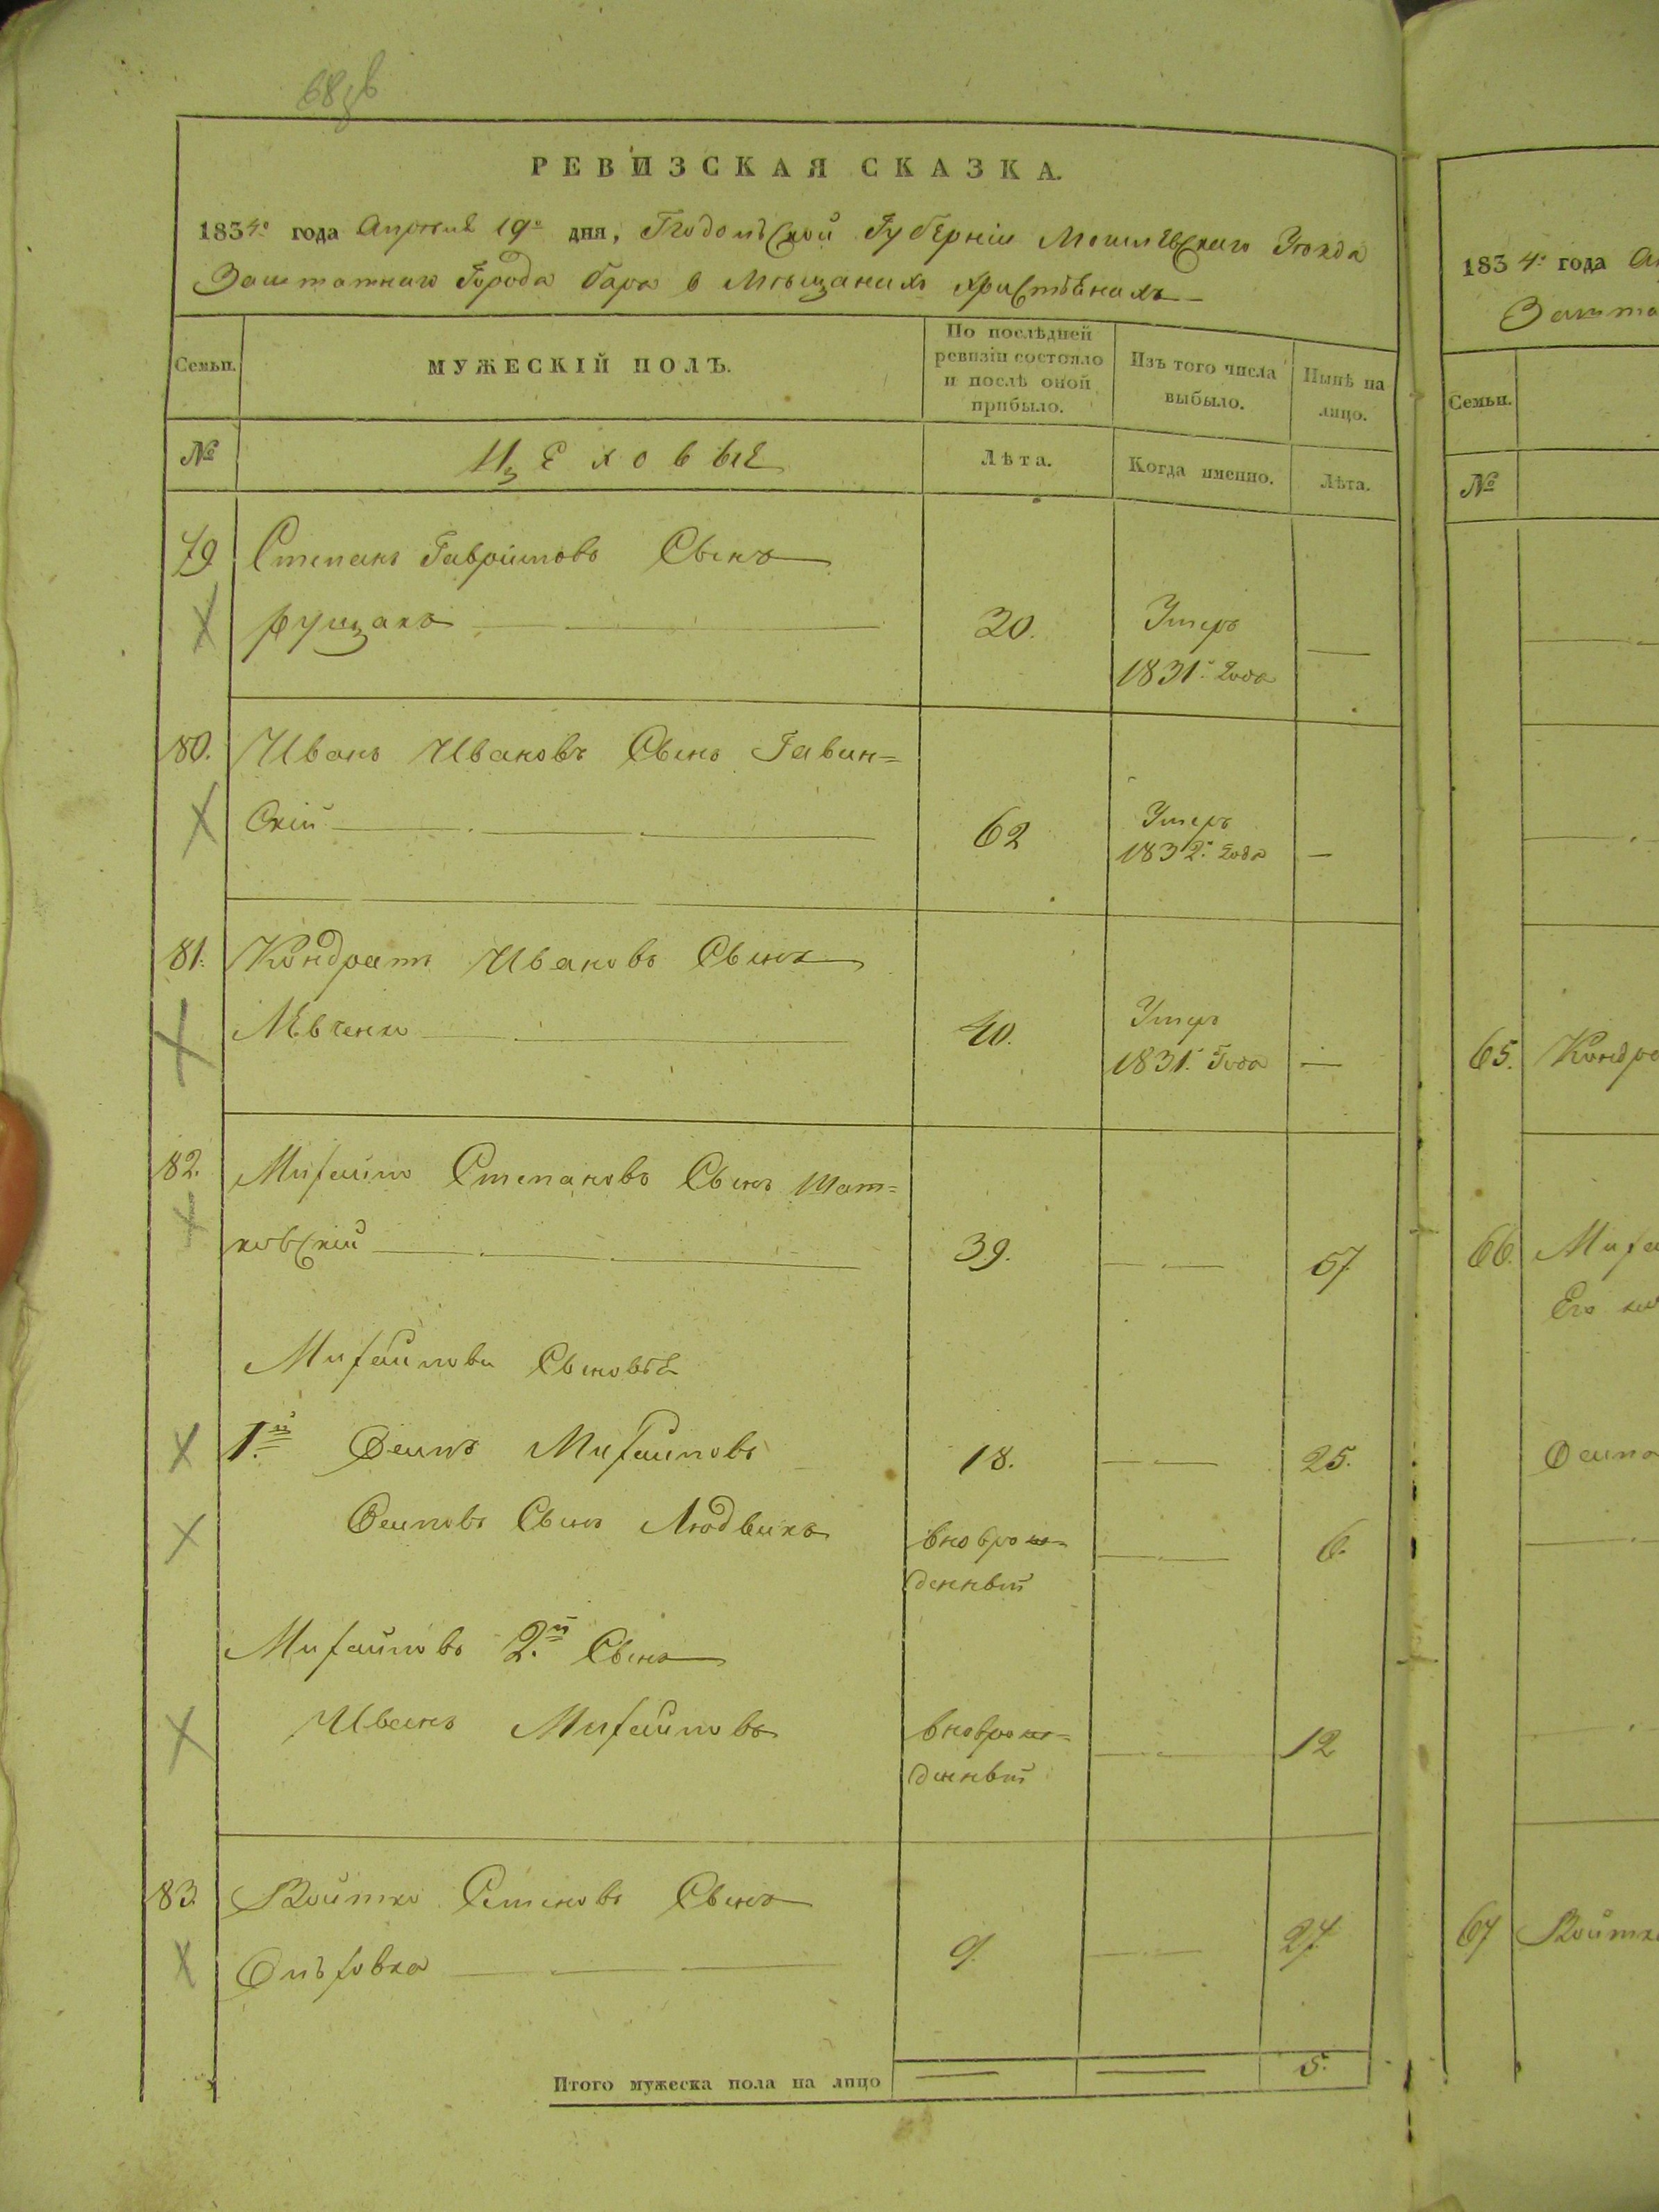 РЕВИЗСКАЯ СКАЗКА.
1834го года Апреля 19го дня, Подольской Губерніи Могилевскаго Уѣзда
Заштатнаго Города Бара о Мѣщанахъ христіанахъ
Семьи.
МУЖЕСКІЙ ПОЛЪ.
По послѣдней ревизіи состояло и послѣ оной прибыло.
Изъ того числа выбыло.
Нынѣ на лицо.
№
Цеховые
Лѣта.
Когда именно.
Лѣта.
79 Степанъ Гавріиловъ Сынъ
30. Умеръ
1831. года
80. Иванъ Ивановъ Сынъ Гавин=
скій 62 Умеръ
1832. года
81. Кондратъ Ивановъ Сынъ
Левченко 40. Умеръ
1831. Года
82. Михайло Степановъ Сынъ Шат=
ковскій 39. 57
Михайловы Сыновье
1.й Осипъ Михайловъ 18. 25.
Осиповъ Сынъ Людвикъ вноврож=
денный 6.
Михайловъ 2.й Сынъ
Иванъ Михайловъ вноврож=
денный 12
83. Войтко Семеновъ Сынъ
9. 27.
Итого мужеска пола на лицо 5.
1834. года
Семьи.
№
65.
66.
Его
67 Войтк